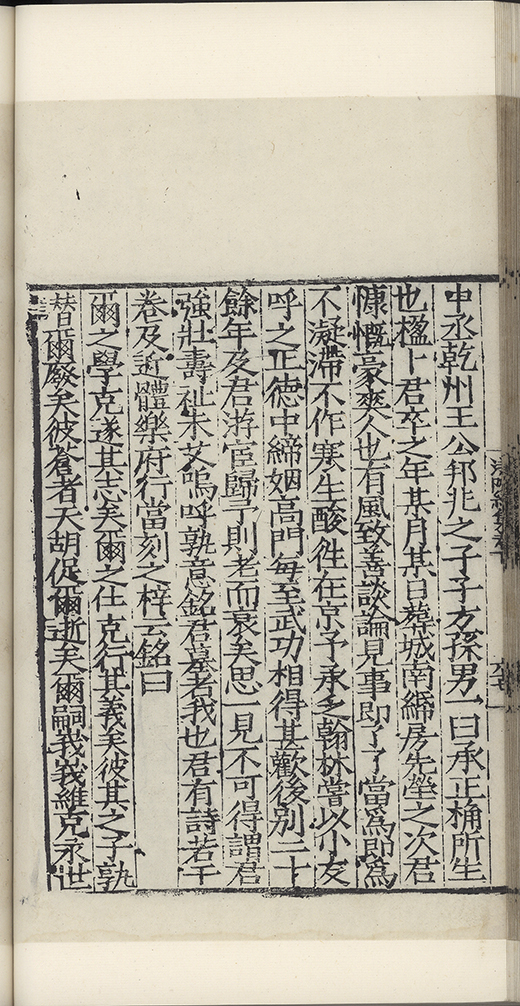 中丞乾州王公邦兆之子子方孫男一曰承正桷所生
也楹卜君卒之年某月某日葬城南締房先塋之次君
慷慨豪爽人也有風致善談論見事即了了當為即為
不凝滯不作寒生酸徃在京予承乏翰林嘗以小友
呼之正德中締姻高門每至武功相得甚歡後別二十
餘年及君游宦歸予則老而衰矣思一見不可得謂君
強壯壽祉未艾嗚呼孰意銘君墓者我也君有詩若干
卷及近體樂府行當刻之梓云銘曰
爾之學克遂其志矣爾之仕克行其義矣彼其之子孰
替爾廢矣彼蒼者天胡促爾逝矣爾嗣峩峩維克永世